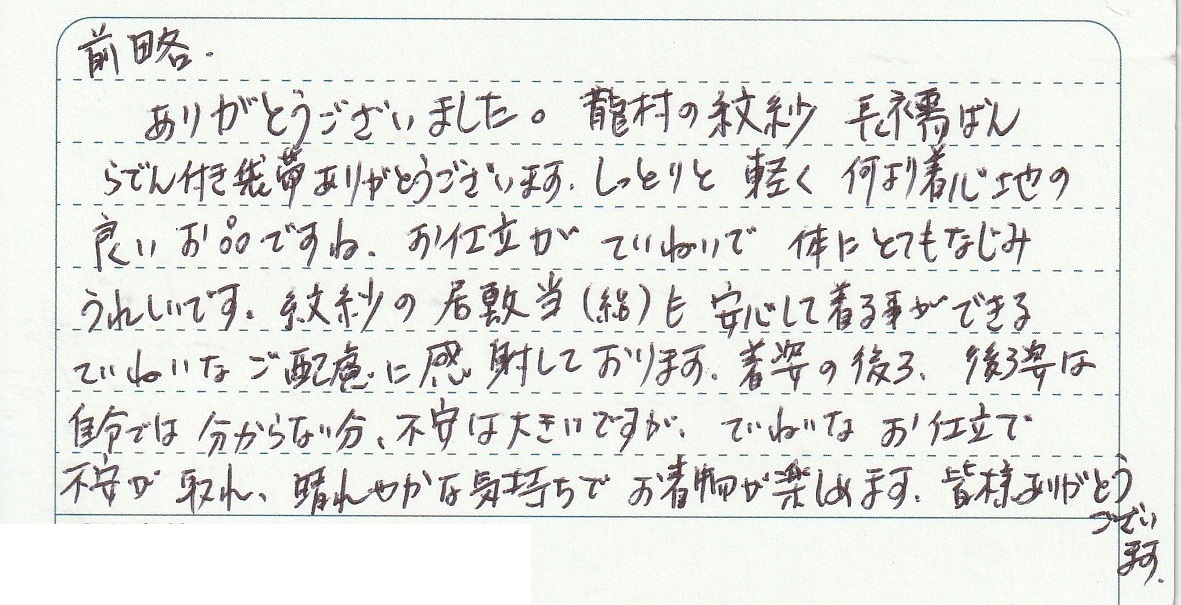 前略.
ありがとうございました。龍村の紋紗 長襦ばん
らでん付き袋帯ありがとうございます.しっとりと 軽く 何より着心地の
良い お品ですね. お仕立が ていねいで 体にとてもなじみ
うれしいです. 紋紗の 居敷当(絽)も 安心して着る事ができる
ていねいな ご配慮に 感射しております. 着姿の後ろ、 後ろ姿は
自分では 分からない分、不安は大きいですが、 ていねいな お仕立で
不安が 取れ、 晴れやかな気持ちで お着物が楽しめます. 皆様ありがとう
ござい
ます.